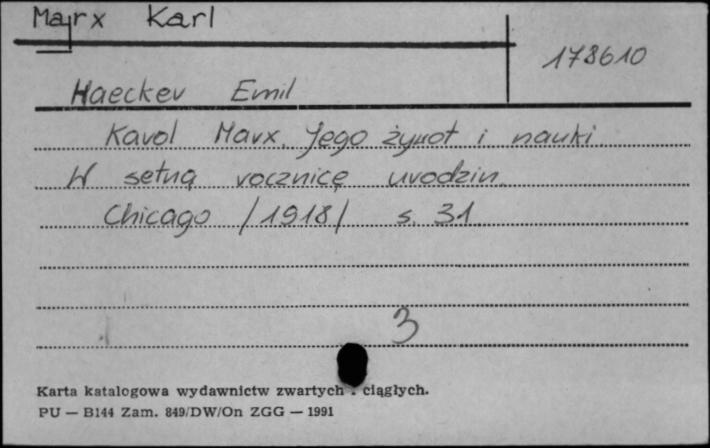 Marx Karl
178610
Haecker Emil
Karol Marx. Jego żywot i nauki
W setną rocznicę urodzin.
Chicago /1918/ s. 31
3
Karta katalogowa wydawnictw zwartych i ciągłych.
PU — B144 Zam. 849/DW/On ZGG — 1991